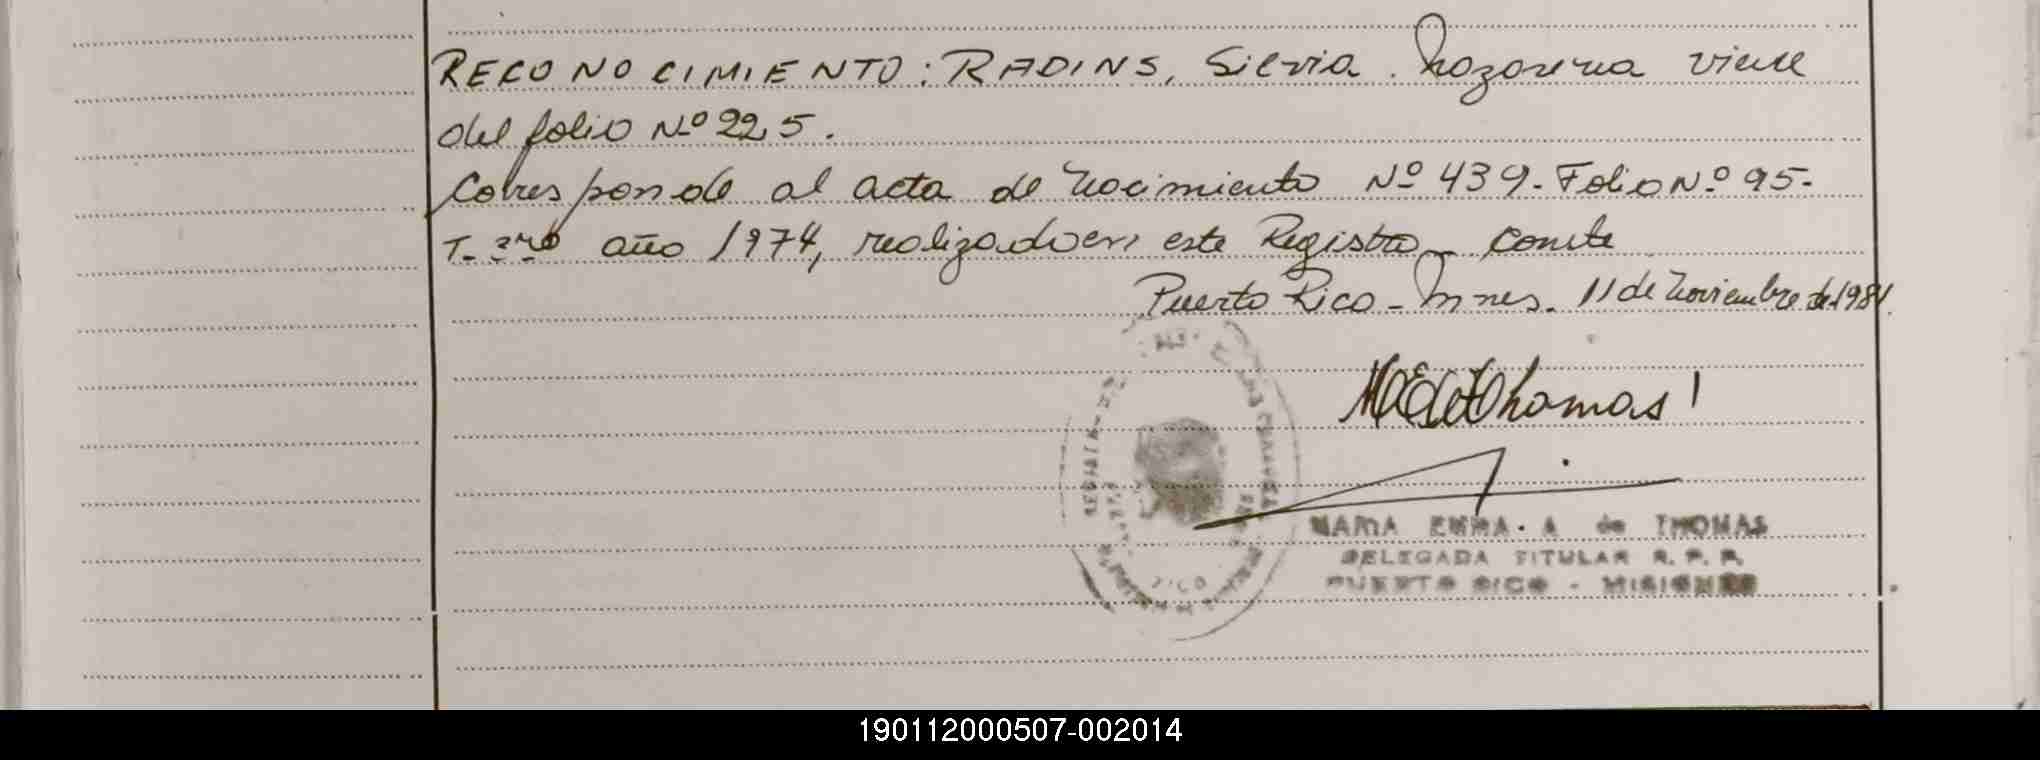 RECONOCIMIENTO: RADINS, Silvia. Nazarena viene
del folio Nº 225.
Corresponde al acta de Nacimiento Nº 439- Folio Nº 95-
T- 3ro año 1974, realizado en este Registro_ Conste
Puerto Rico - Mnes. 11 de Noviembre de 1981.
MAEdeThomas
MARIA EMMA. A de THOMAS
DELEGADA TITULAR R. P. P.
PUERTO RICO - MISIONES
RICO
190112000507-002014